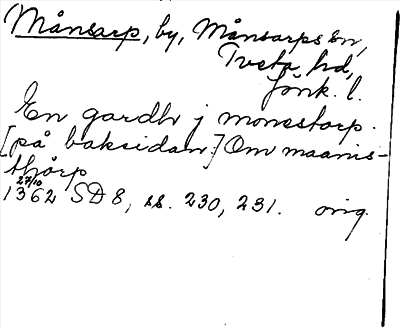 Månsarp, by, Månsarps sn,
Tveta hd,
Jönk. l.
En gardh j monestorp.
[på baksidan:] Om maanis-
thorp
27/10
1362 SD 8, ss. 230, 231. orig.